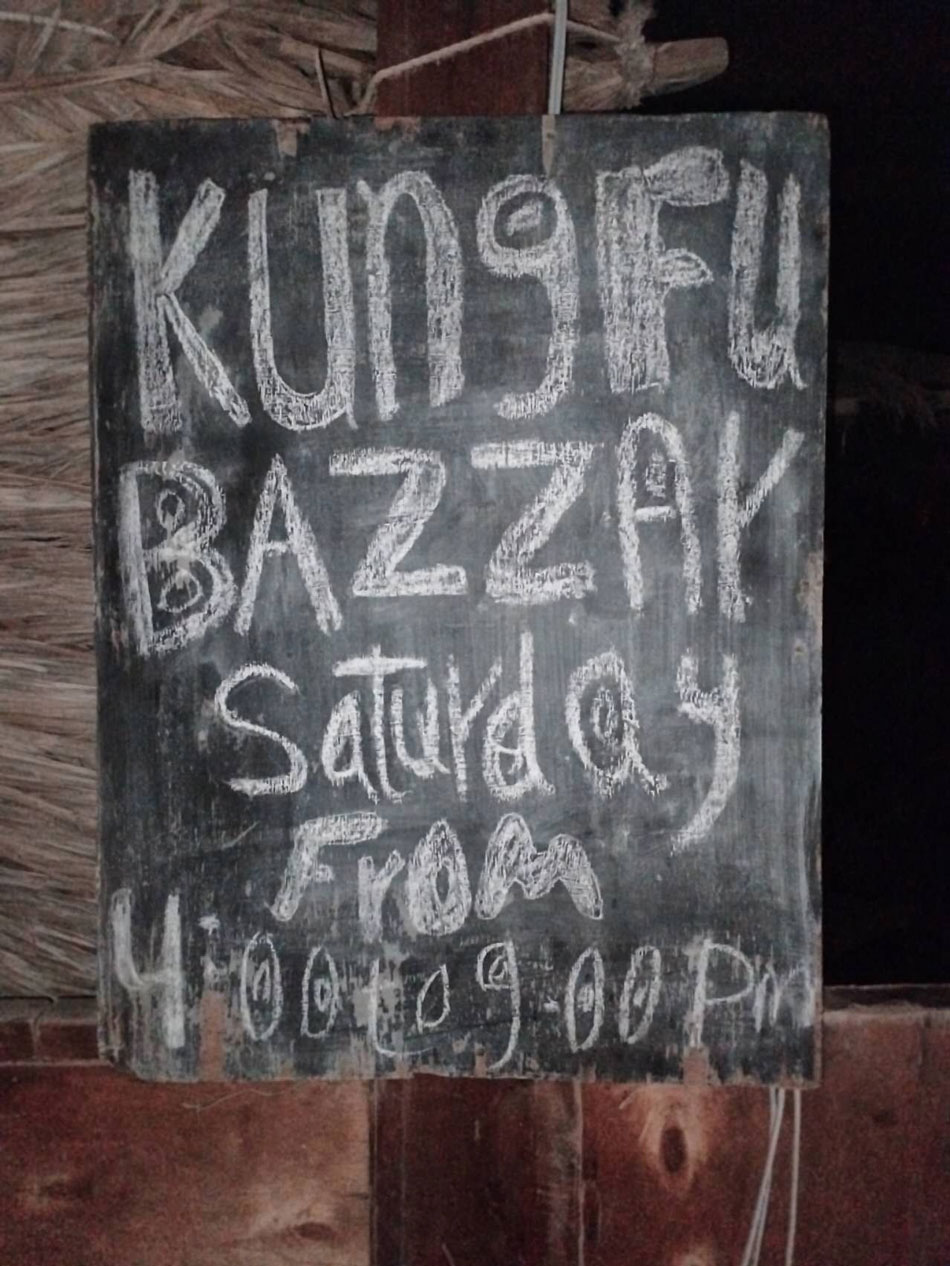 KUngFU
BAZZAR
Saturday
From
4:00 to 9:00 Pm